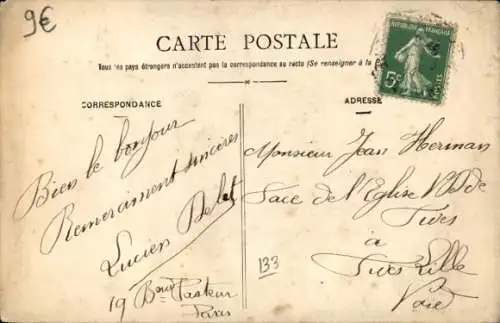 9€
CARTE POSTALE
Tous les pays étrangers n'acceptent pas la correspondance au recto (Se renseigner à la
RÉPUBLIQUE FRANÇAISE
5c
POSTES
CORRESPONDANCE
ADRESSE
Bien le bonjour
Remerciment sincères
Lucien Delet
19 Pasteur
Paris
133
Monsieur Jean Herman
Face de l'Eglise
Fives
à
Fives Lille